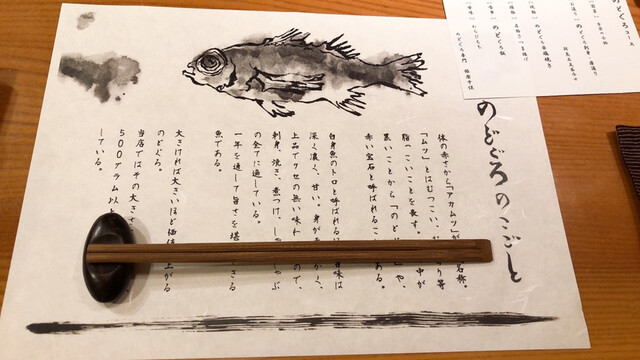 のどぐろコース
のどぐろ飯
のどぐろのこごと
体の赤さから「アカムツ」が 名称。
「ムツ」とはむつこい、 り等
脂っこいことを表す。 中が
黒いことから「のど や、
赤い宝石と呼ばれるこ ある。
白身魚のトロと呼ばれる 旨味は
深く濃く、甘い。身が かく、
上品でクセの無い味わ ので、
刺身、焼き、煮つけ、し ゃぶ
の全てに適している。
一年を通して旨さを堪 きる
魚である。
大きければ大きいほど価値 上がる
のどぐろ。
当店ではその大きさ
500グラム以
している。